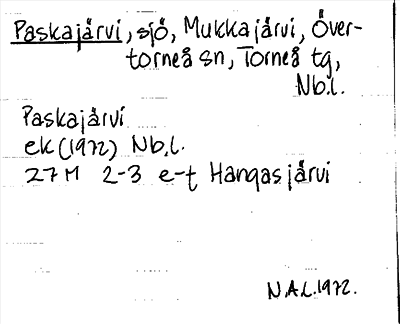 Paskajärvi, sjö, Mukkajärvi, Över-
torneå sn, Torneå tg,
Nb.l.
Paskajärvi
ek (1972) Nb.l.
27M 2-3 e-t Hangasjärvi
N.A.L.1972.